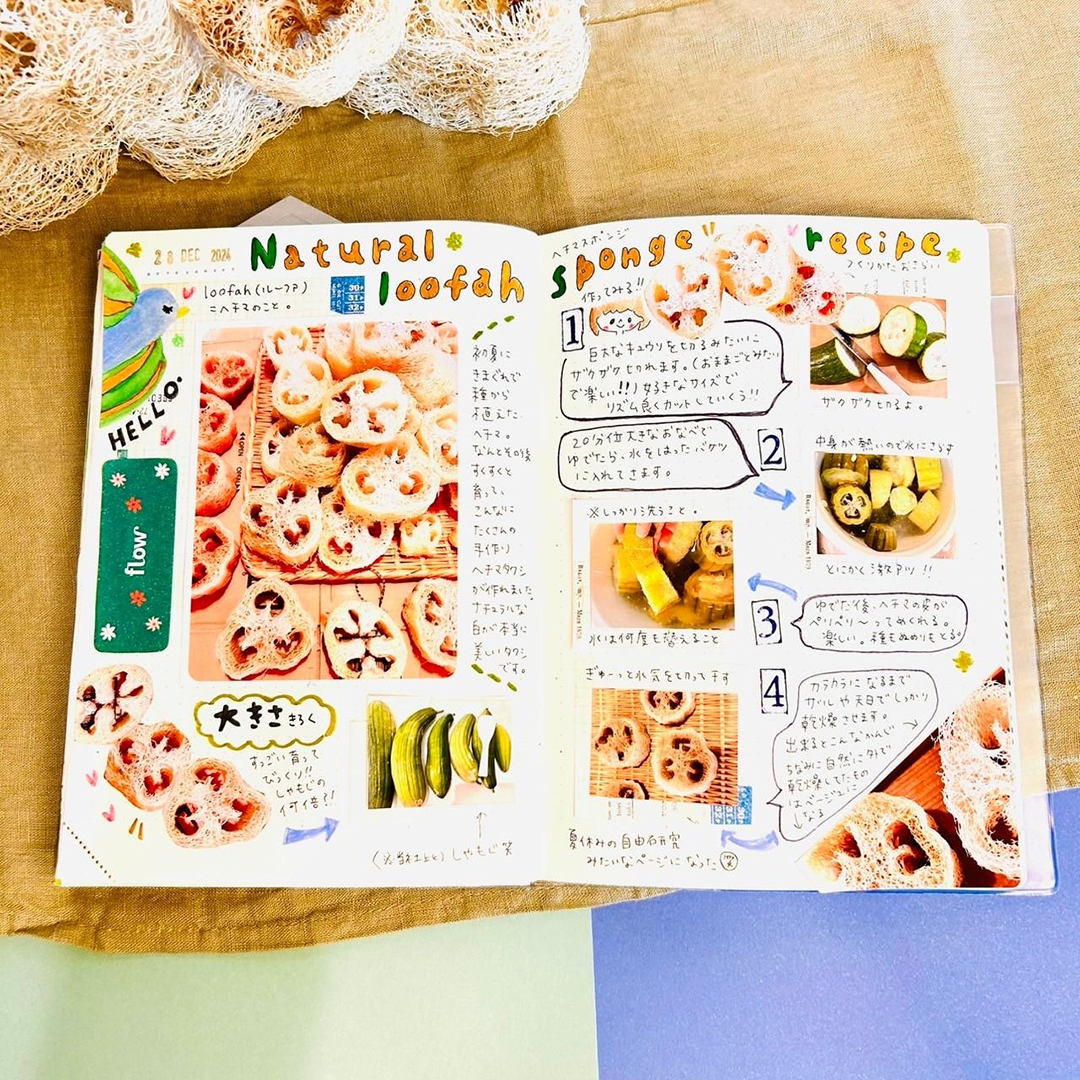 28 DEC 2024
Natural
loofah
loofah(ルーファ)
=ヘチマのこと。
30
31
32
HELLO.
flow
初夏に
きまぐれで
種から
植えた、
ヘチマ。
なんとその後
すくすくと
育って、
こんなに
たくさんの
手作り
ヘチマタワシ
が作れました。
ナチュラルな
白が本当に
美しいタワシ
です。
大きさ きろく
すっごい育って
びっくり!!
しゃもじの
何倍?!
しゃもじ笑
ヘチマスポンジ
sponge recipe
つくりかたおさらい
作ってみる!!
1
巨大なキュウリを切るみたいに
ザクザク切れます。(おままごとみたい
で楽しい!!)好きなサイズで
リズム良くカットしていくう!!
ザクザク切るよ。
20分位大きなおなべで
ゆでたら、水をはったバケツ
に入れてきます。
2
中身が熱いので水にさらす
とにかく激アツ!!
※しっかり洗うこと。
水は何度も替えること
3
ゆでた後、ヘチマの皮が
ペリペリ〜ってめくれる。
楽しい。種もぬめりもとる。
ぎゅーっと水気を切って干す
4
カラカラになるまで
ザルや天日でしっかり
乾燥させます。
出来るとこんなかんじ
ちなみに自然に外で
乾燥したもの
はページ上に
なる
夏休みの自由研究
みたいなページになった